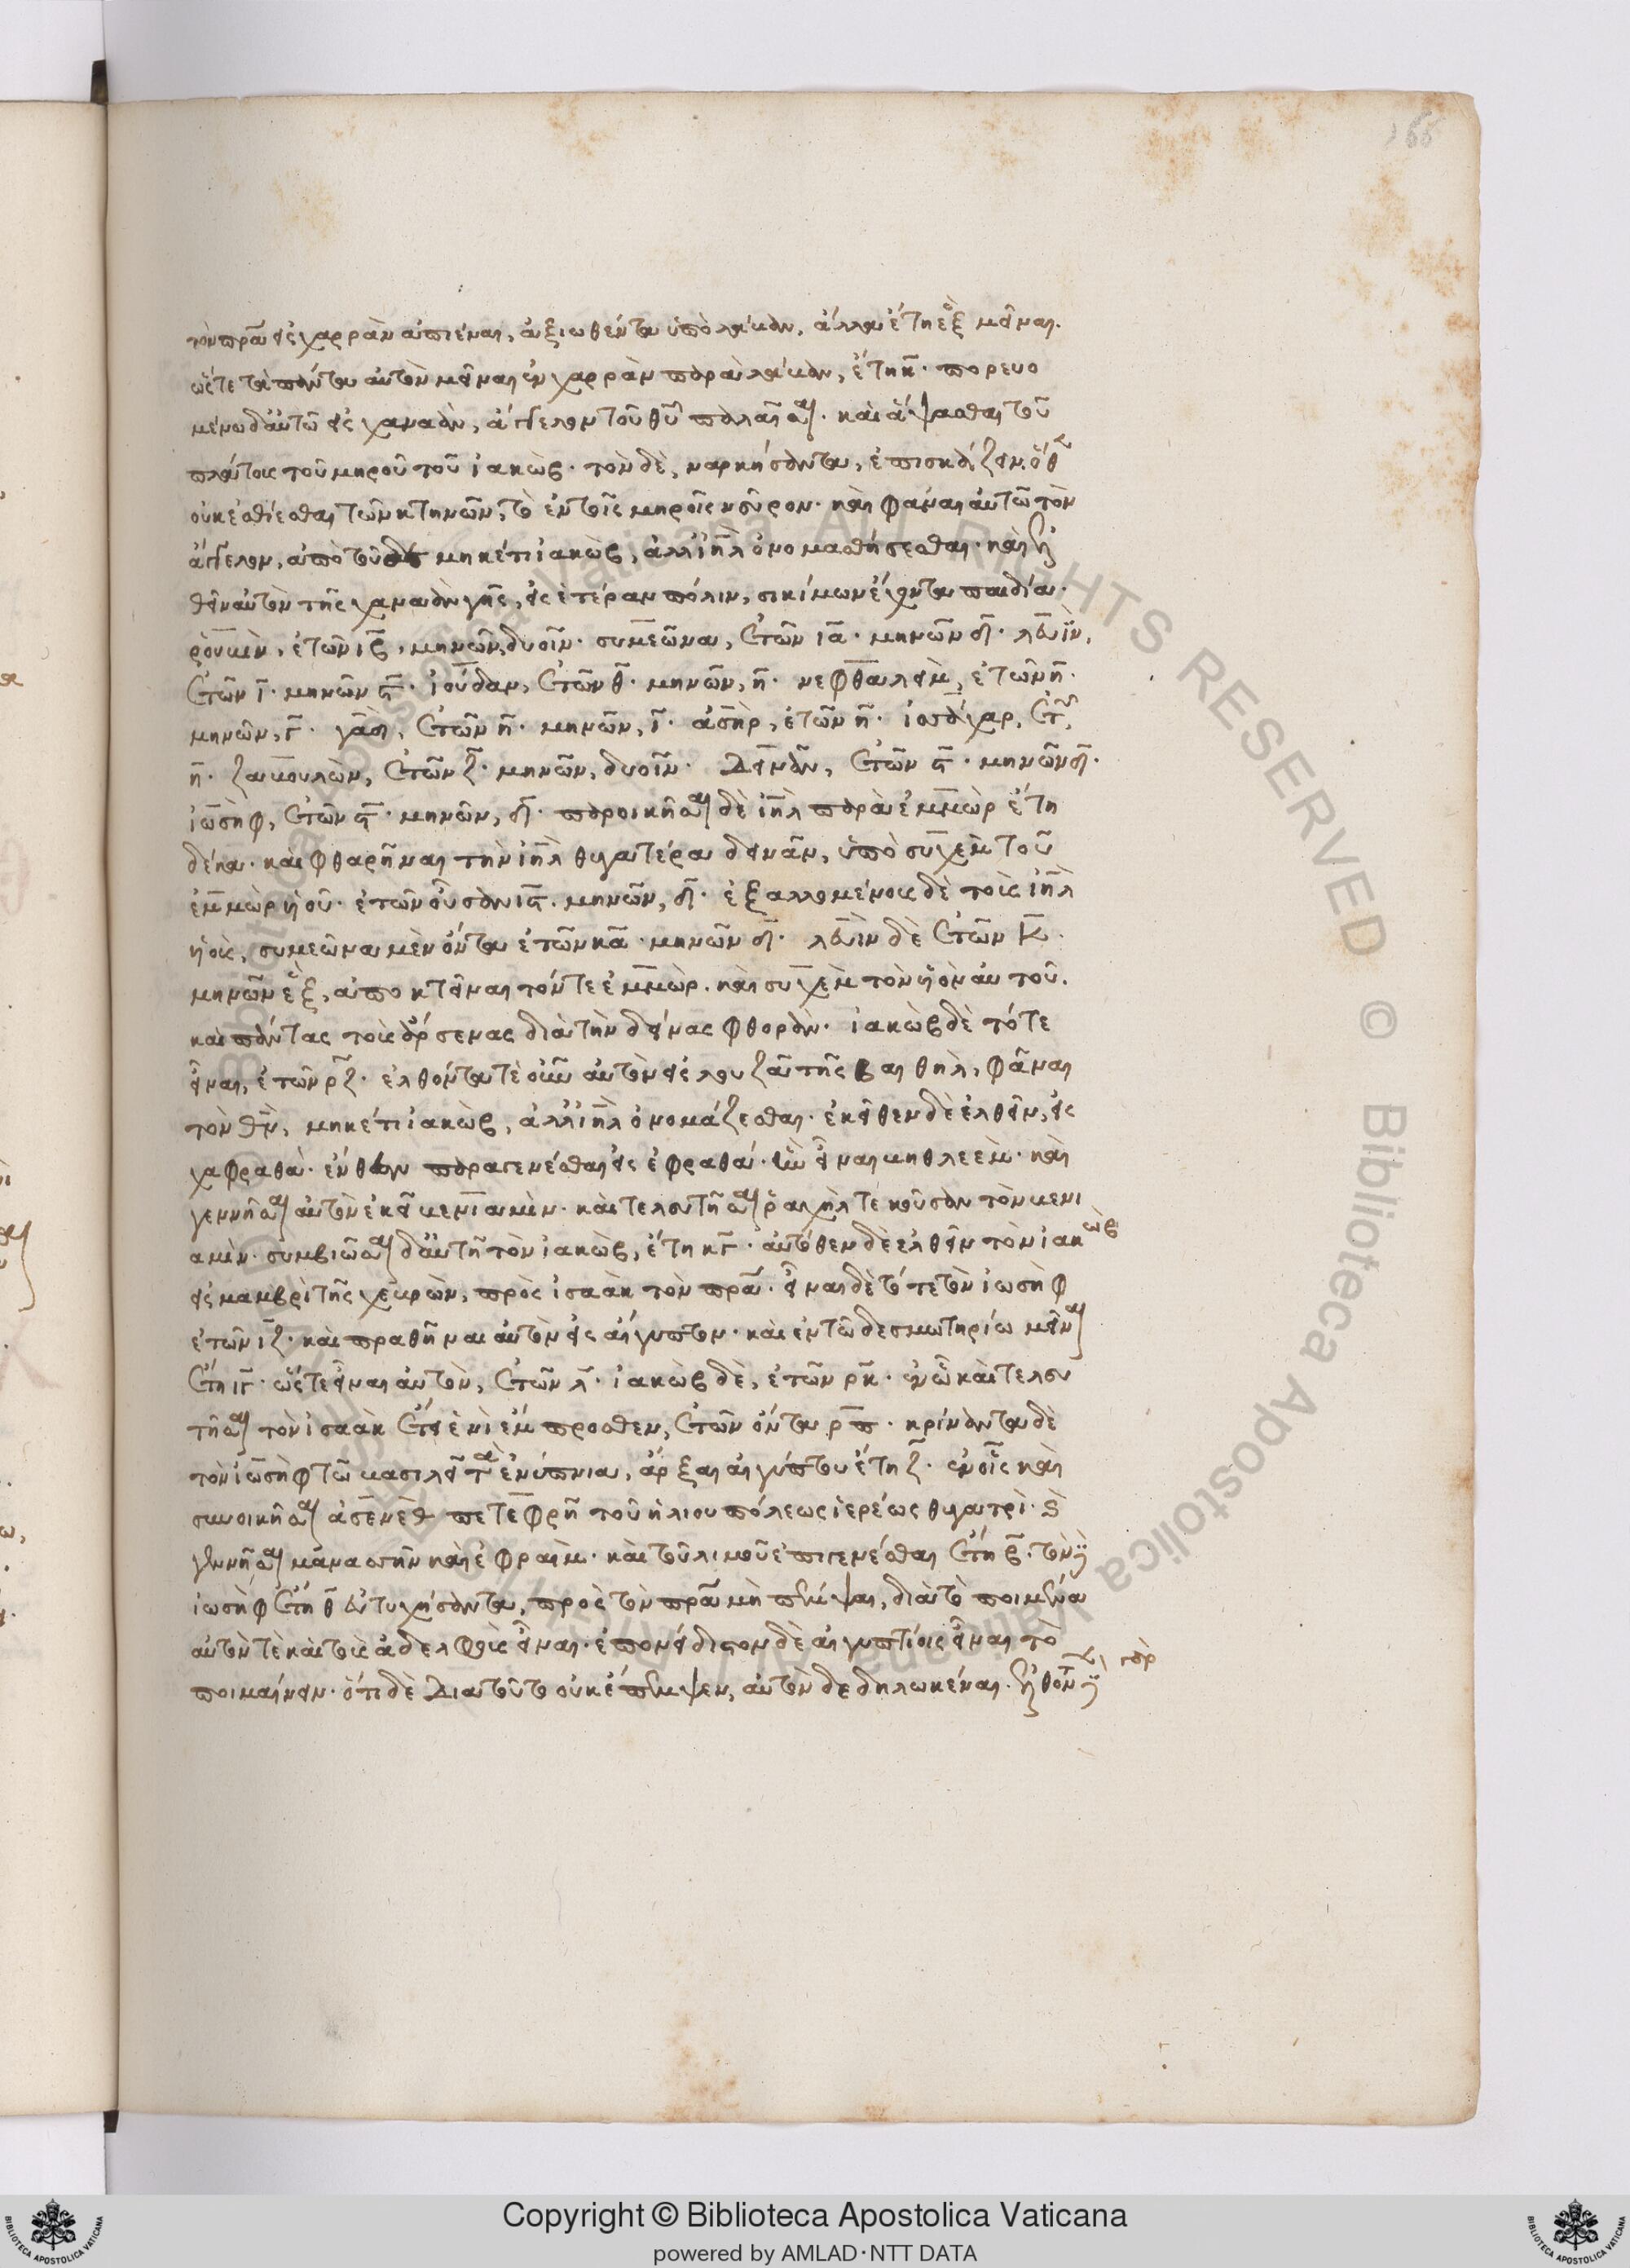 166
τὸν πρα εἰς χαρρὰν ἀπιέναι, ἀξιωθέντα ὑπὸ λάβαν, ἄλλα ἔτη ἓξ μεῖναι.
ὥστε τὰ πάντα αὐτὸν μεῖναι ἐν χαρρὰν παρὰ λάβαν, ἔτη κ̅· πορευο
μένω δ' αὐτῶ εἰς χαναὰν, ἄγγελον τοῦ θυ παλαῖσαι· καὶ ἅψασθαι τοῦ
πλάτους τοῦ μηροῦ τοῦ ἰακὼβ· τὸν δὲ, ναρκήσαντα, ἐπισκάζειν· ὅθ
οὐκ ἐσθίεσθαι τῶν κτηνῶν, τὸ ἐν τοῖς μηροῖς νεῦρον· καὶ φάναι αὐτῶ τὸν
ἄγγελον, ἀπὸ τοῦδε μηκέτι ἰακὼβ, ἀλλ' ιηλ ὀνομασθήσεσθαι· καὶ ἐλ
θεῖν αὐτὸν τῆς χαναὰν γῆς, εἰς ἑτέραν πόλιν, σικίμων ἔχοντα παιδία·
ῥουβὶν, ἐτῶν ιβ, μηνῶν δυοῖν· συμεῶνα, ἐτῶν ια· μηνῶν δ· λευὶν,
ἐτῶν ι· μηνῶν ϛ· ἰούδαν, ἐτῶν θ· μηνῶν, η· νεφθαλεὶμ, ἐτῶν η·
μηνῶν, ι· γὰδ, ἐτῶν η· μηνῶν, ι· ἀσὴρ, ἐτῶν η· ἰσσάχαρ, ἐτ
η· ζαβουλὼν, ἐτῶν ζ· μηνῶν, δυοῖν· δείναν, ἐτῶν ϛ· μηνῶν δ·
ἰωσὴφ, ἐτῶν ϛ· μηνῶν, δ· παροικῆσαι δὲ ιηλ παρὰ ἐμμὼρ ἔτη
δέκα· καὶ φθαρῆναι τὴν ιηλ θυγατέρα δείναν, ὑπὸ συχὲμ τοῦ
ἐμμὼρ υἱοῦ· ἐτῶν οὖσαν ιϛ· μηνῶν, δ· ἐξαλλομένους δὲ τοὺς ιηλ
υἱοὺς, συμεῶνα μὲν ὄντα ἐτῶν κα· μηνῶν δ· λευὶν δὲ ἐτῶν κ·
μηνῶν ἓξ, ἀποκτεῖναι τόν τε ἐμμὼρ· καὶ συχὲμ τὸν υἱὸν αὐτοῦ.
καὶ πάντας τοὺς ἄρσενας διὰ τὴν δείνας φθοράν· ἰακὼβ δὲ τότε
εἶναι, ἐτῶν ρζ· ἐλθόντα τὲ οὖν αὐτὸν εἰς λουζὰ τῆς βαιθηλ, φάναι
τὸν θν, μηκέτι ἰακὼβ, ἀλλ' ιηλ ὀνομάζεσθαι· ἐκεῖθεν δὲ ἐλθεῖν, εἰς
χαφραθά· ἔνθεν παραγενέσθαι εἰς ἐφραθά· ἣν εἶναι βηθλεέμ· καὶ
γεννῆσαι αὐτὸν ἐκεῖ βενιαμίν· καὶ τελευτῆσαι ῥαχὴλ τεκοῦσαν τὸν βενι
αμίν· συμβιῶσαι δ' αὐτῇ τὸν ἰακὼβ, ἔτη κγ· αὐτόθεν δὲ ἐλθεῖν τὸν ἰακὼβ
εἰς μαμβρὶ τῆς χεβρὼν, πρὸς ἰσαὰκ τὸν πρα· εἶναι δὲ τότε τὸν ἰωσὴφ
ἐτῶν ιζ· καὶ πραθῆναι αὐτὸν εἰς αἴγυπτον· καὶ ἐν τῶ δεσμωτηρίω μεῖναι
ἔτη ιγ· ὥστε εἶναι αὐτὸν, ἐτῶν λ· ἰακὼβ δὲ, ἐτῶν ρκ· ἐν ᾧ καὶ τελευ
τῆσαι τὸν ἰσαὰκ ἔτει ἑνὶ ἔμπροσθεν, ἐτῶν ὄντα ρπ· κρίναντα δὲ
τὸν ἰωσὴφ τῶ βασιλεῖ τὰ ἐνύπνια, ἄρξαι αἰγύπτου ἔτη ζ· ἐν οἷς καὶ
συνοικῆσαι ἀσενὲθ πετεφρῆ τοῦ ἡλιουπόλεως ἱερέως θυγατρί· ϗ
γεννῆσαι μανασσῆν καὶ ἐφραίμ· καὶ τοῦ λιμοῦ ἐπιγενέσθαι ἔτη β· τὸν δὲ
ἰωσὴφ ἔτη θ εὐτυχήσαντα, πρὸς τὸν πρα μὴ πέμψαι, διὰ τὸ ποιμένα
αὐτόν τε καὶ τοὺς ἀδελφοὺς εἶναι· ἐπονείδιστον δὲ αἰγυπτίοις εἶναι τὸ
ποιμαίνειν· ὅτι δὲ διὰ τοῦτο οὐκ ἔπεμψεν, αὐτὸν δεδηλωκέναι· ἐλθόντων γὰρ